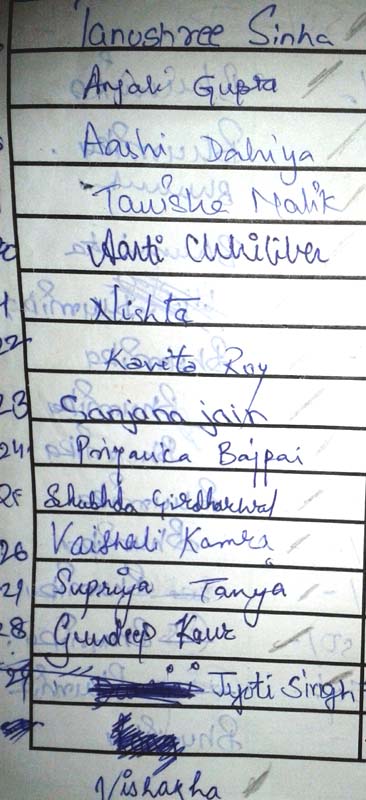 Tanushree Sinha
Anjali Gupta
Aashi Dahiya
Tanisha Malik
Aarti Chhiliber
Nishta
22 Kavita Roy
23 Sanjana jain
24 Priyanka Bajpai
Shubhda Girdharwal
26 Vaishali Kamra
Supriya Tanya
28 Gundeep Kaur
29 Jyoti Singh
Vishakha